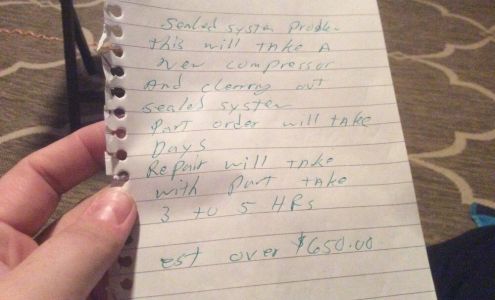 Sealed system Problem
this will take A
new compressor
And cleaning out
sealed system
Part order will take
Days
Repair will take
with part take
3 to 5 HRS
est over $650.00